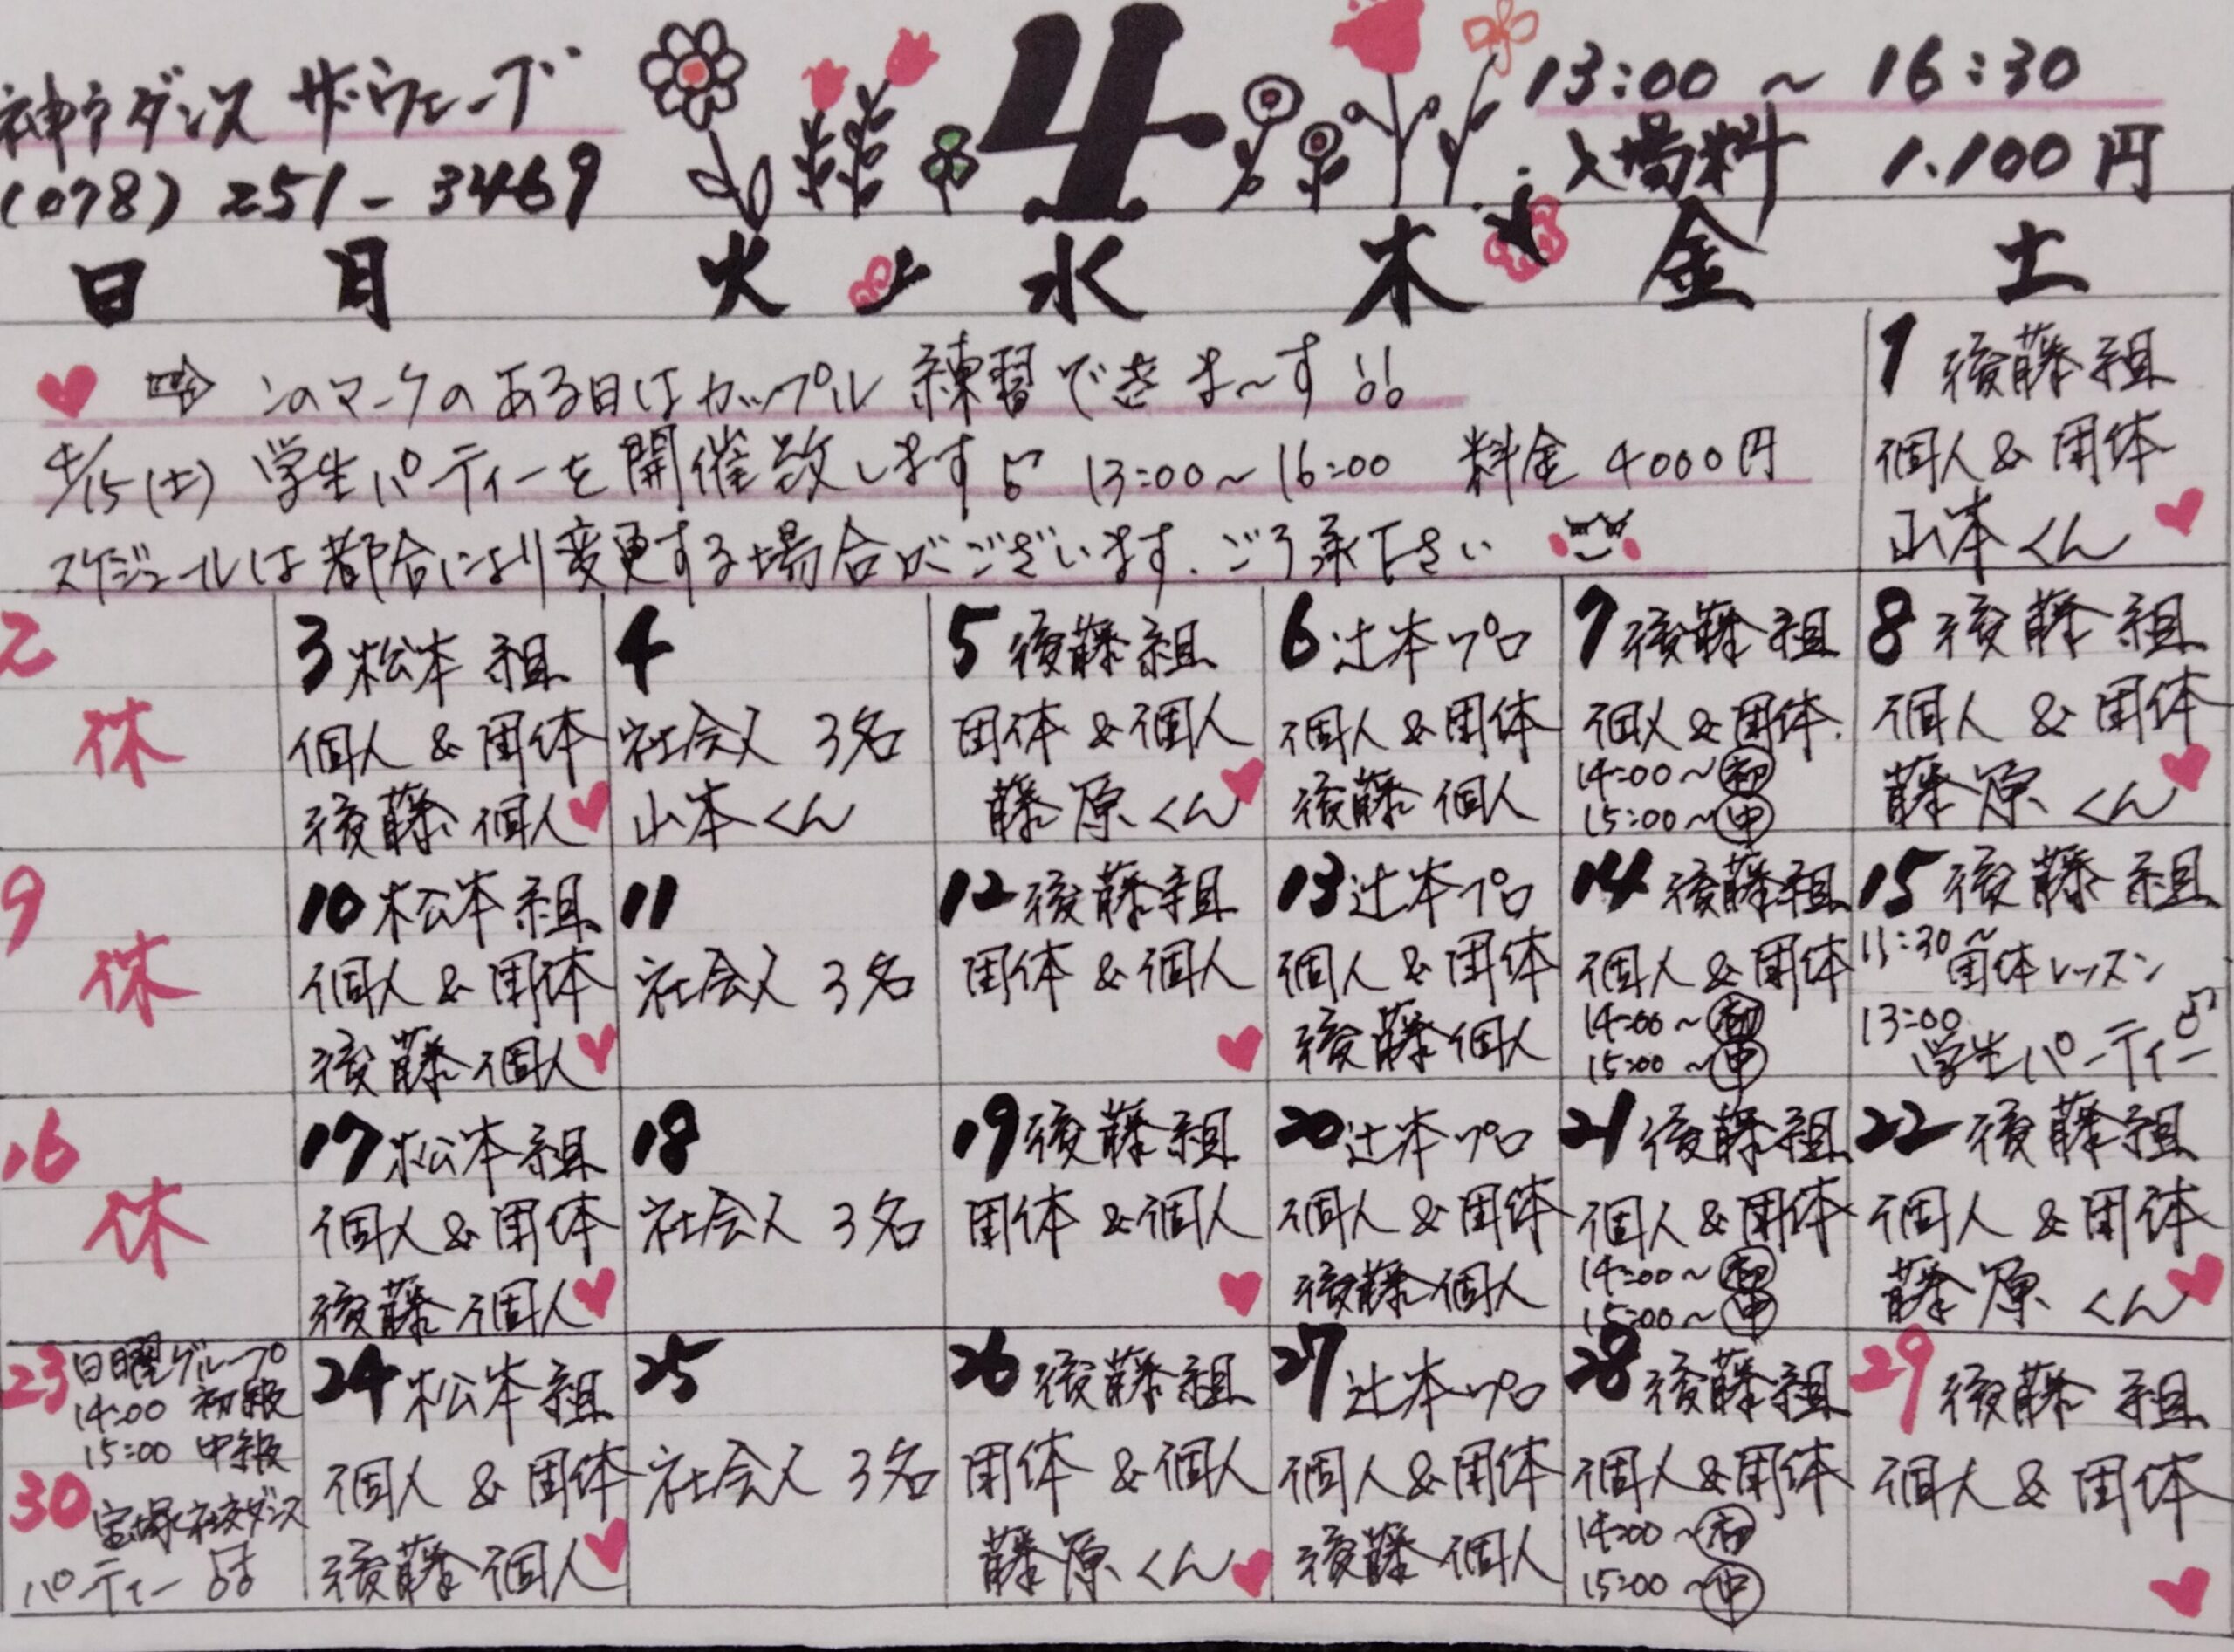 神戸ダンス ザ・ウェーブ
(078) 251-3469
4
13:00 ~ 16:30
入場料 1.100円
日 月 火 水 木 金 土
♥ ⇨ このマークのある日はカップル練習できま～す!!
4/15(土) 学生パーティーを開催致します♫ 13:00~16:00 料金 4000円
スケジュールは都合により変更する場合がございます。ご了承下さい
1 後藤組
個人&団体
山本くん ♥
2
休
3 松本組
個人&団体
後藤個人 ♥
4
社会人 3名
山本くん
5 後藤組
団体&個人
藤原くん ♥
6 辻本プロ
個人&団体
後藤個人
7 後藤組
個人&団体.
14:00~㊥初
15:00~㊥
8 後藤組
個人&団体
藤原くん ♥
9
休
10 松本組
個人&団体
後藤個人 ♥
11
社会人 3名
12 後藤組
団体&個人
♥
13 辻本プロ
個人&団体
後藤個人
14 後藤組
個人&団体
14:00~初
15:00~中
15 後藤組
11:30~
団体レッスン
13:00
学生パーティー♫
16
休
17 松本組
個人&団体
後藤個人 ♥
18
社会人 3名
19 後藤組
団体&個人
♥
20 辻本プロ
個人&団体
後藤個人
21 後藤組
個人&団体
14:00~初
15:00~中
22 後藤組
個人&団体
藤原くん ♥
23 日曜グループ
14:00 初級
15:00 中級
30 宝塚社交ダンス
パーティー♫
24 松本組
個人&団体
後藤個人 ♥
25
社会人 3名
26 後藤組
団体&個人
藤原くん ♥
27 辻本プロ
個人&団体
後藤個人
28 後藤組
個人&団体
14:00~初
15:00~中
29 後藤組
個人&団体
♥